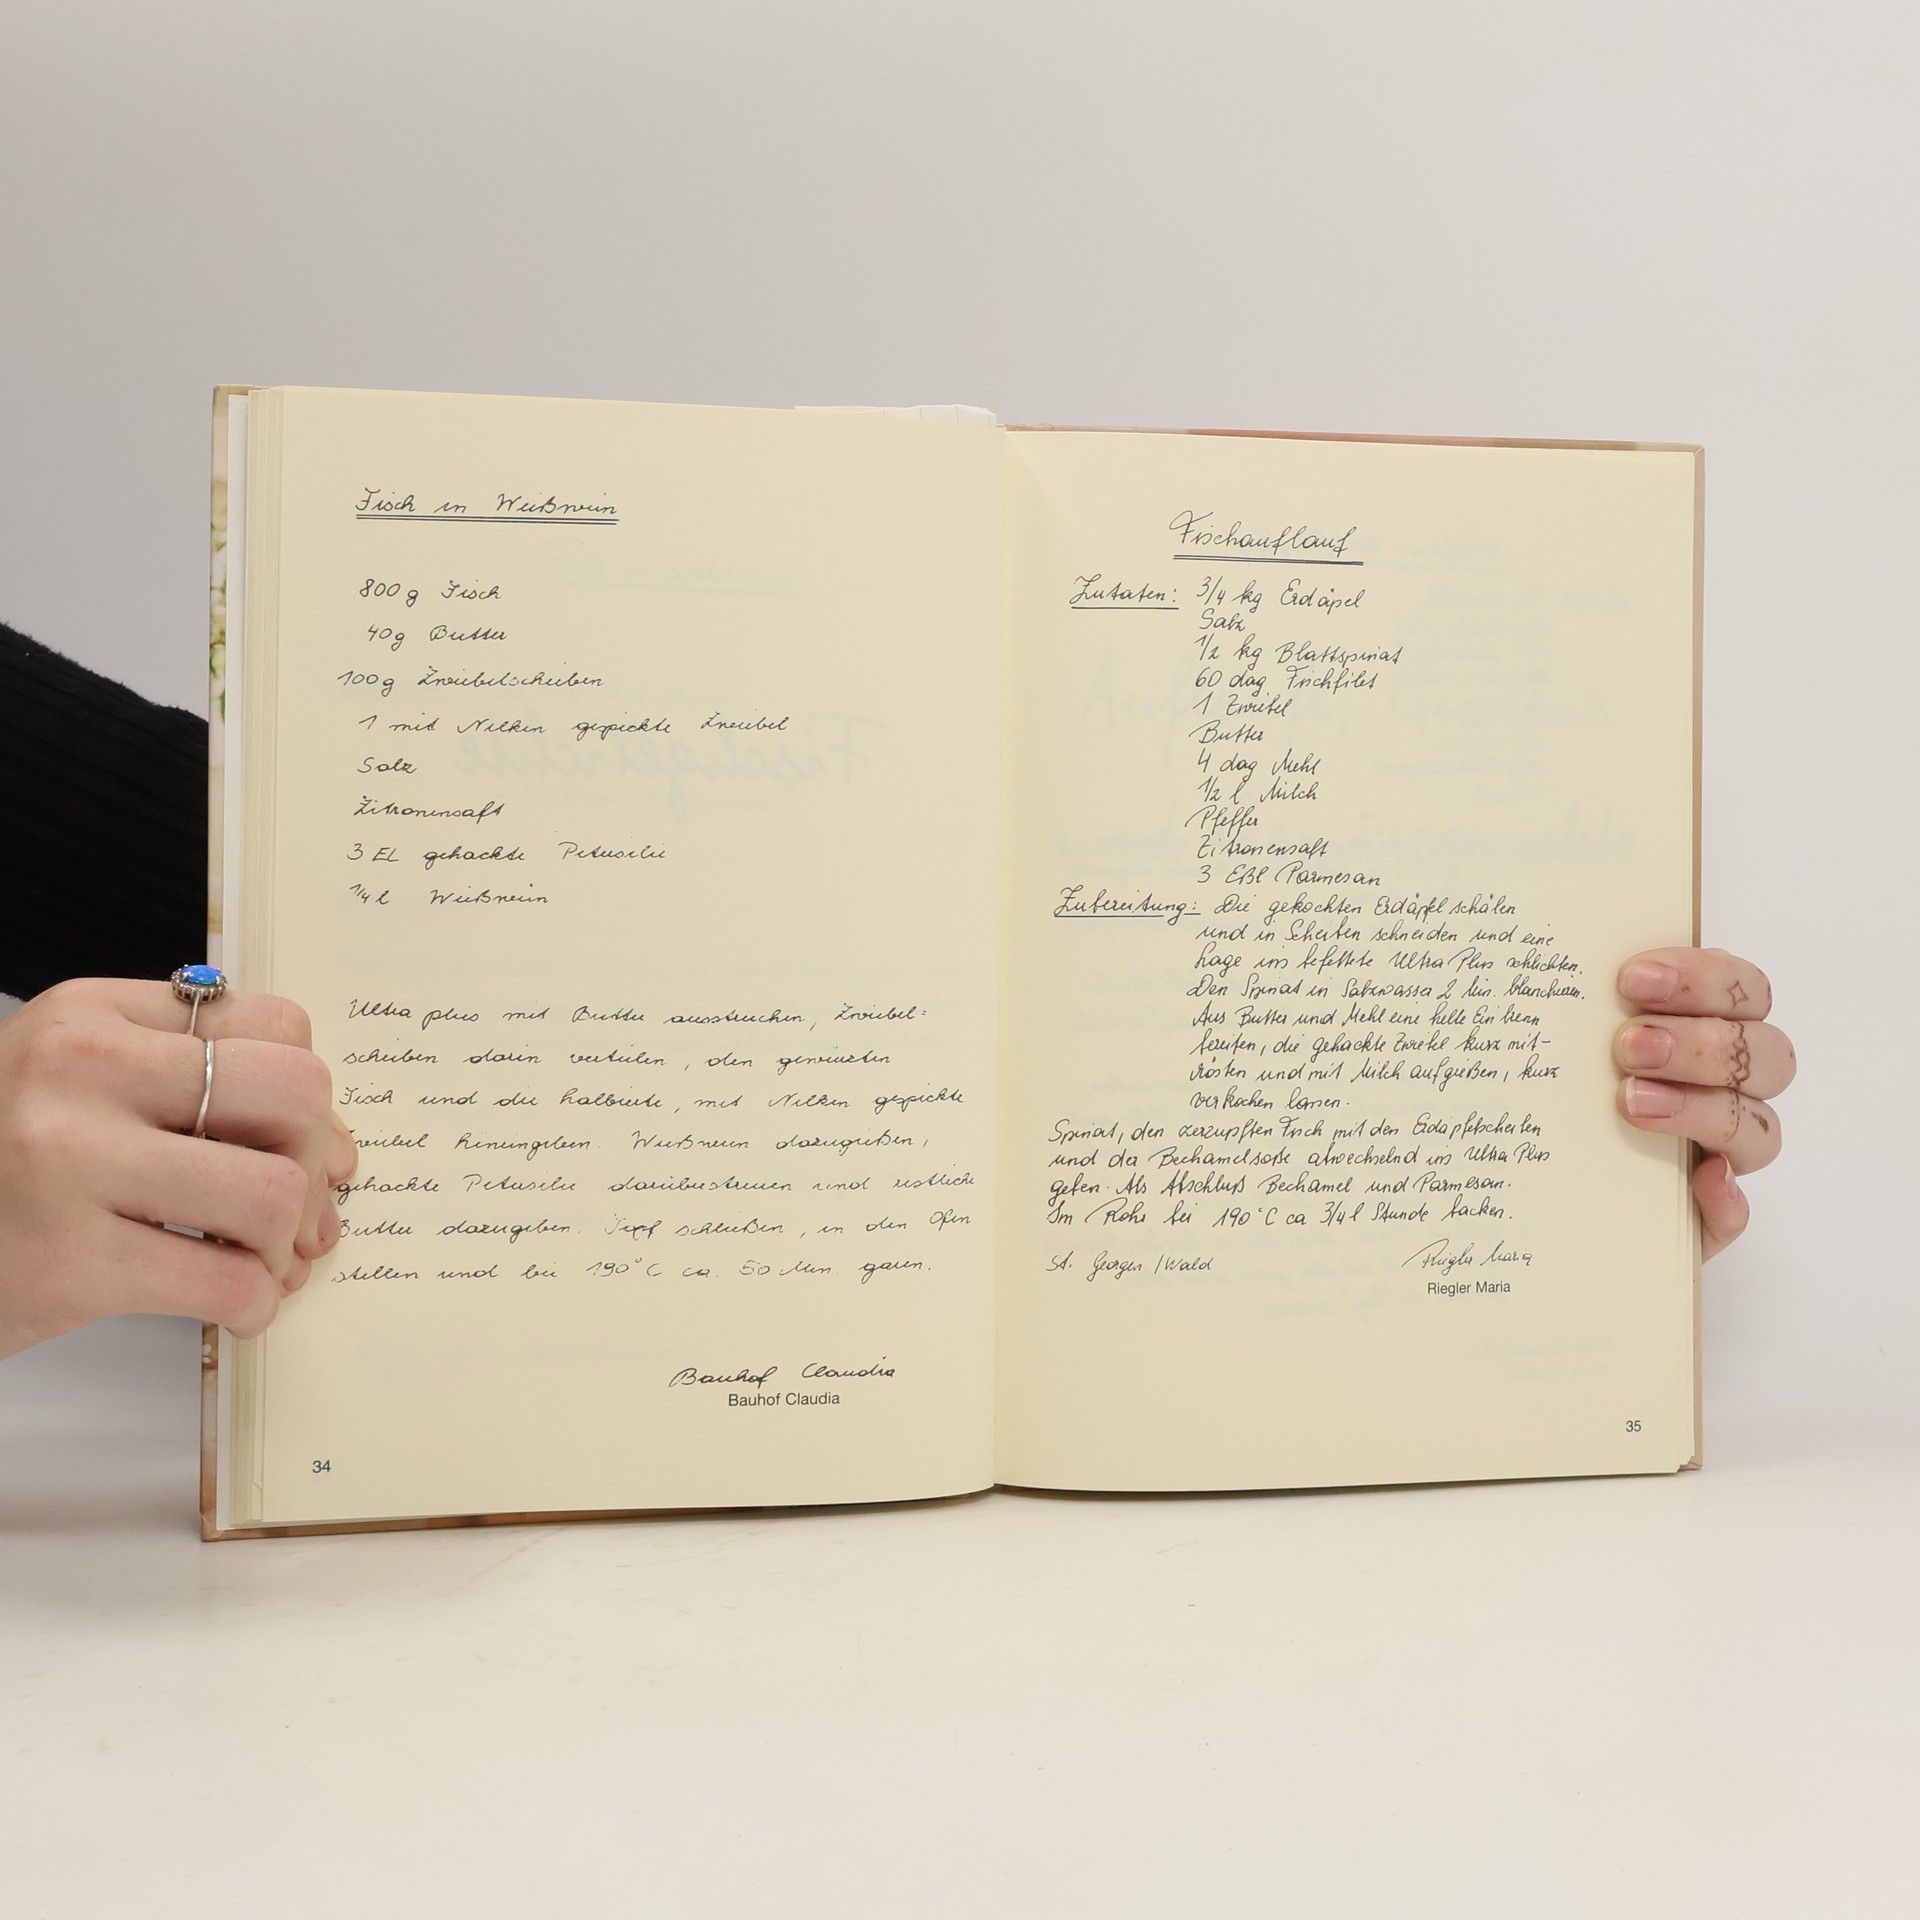 Fisch in Weißwein
800 g Fisch
40 g Butter
100 g Zwiebelscheiben
1 mit Nelken gespickte Zwiebel
Salz
Zitronensaft
3 EL gehackte Petersilie
1/4 l Weißwein
Ultra plus mit Butter ausstreichen, Zwiebel=
scheiben darin verteilen, den gewürzten
Fisch und die halbierte, mit Nelken gespickte
Zwiebel hineingeben. Weißwein dazugießen,
gehackte Petersilie darüberstreuen und restliche
Butter dazugeben. Topf schließen, in den Ofen
stellen und bei 190°C ca. 50 Min. garen.
Bauhof Claudia
Bauhof Claudia
34
Fischauflauf
Zutaten: 3/4 kg Erdäpel
Salz
1/2 kg Blattspinat
60 dag Fischfilet
1 Zwiebel
Butter
4 dag Mehl
1/2 l Milch
Pfeffer
Zitronensaft
3 Eßl Parmesan
Zubereitung: Die gekochten Erdäpfel schälen
und in Scheiben schneiden und eine
Lage ins befettete Ultra Plus schlichten.
Den Spinat in Salzwasser 2 Min. blanchieren.
Aus Butter und Mehl eine helle Einbrenn
bereiten, die gehackte Zwiebel kurz mit-
rösten und mit Milch aufgießen, kurz
verkochen lassen.
Spinat, den zerzupften Fisch mit den Erdäpfelscheiben
und der Bechamelsoße abwechselnd ins Ultra Plus
geben. Als Abschluß Bechamel und Parmesan.
Im Rohr bei 190°C ca 3/4 l Stunde backen.
St. Georgen / Wald
Riegler Maria
Riegler Maria
35